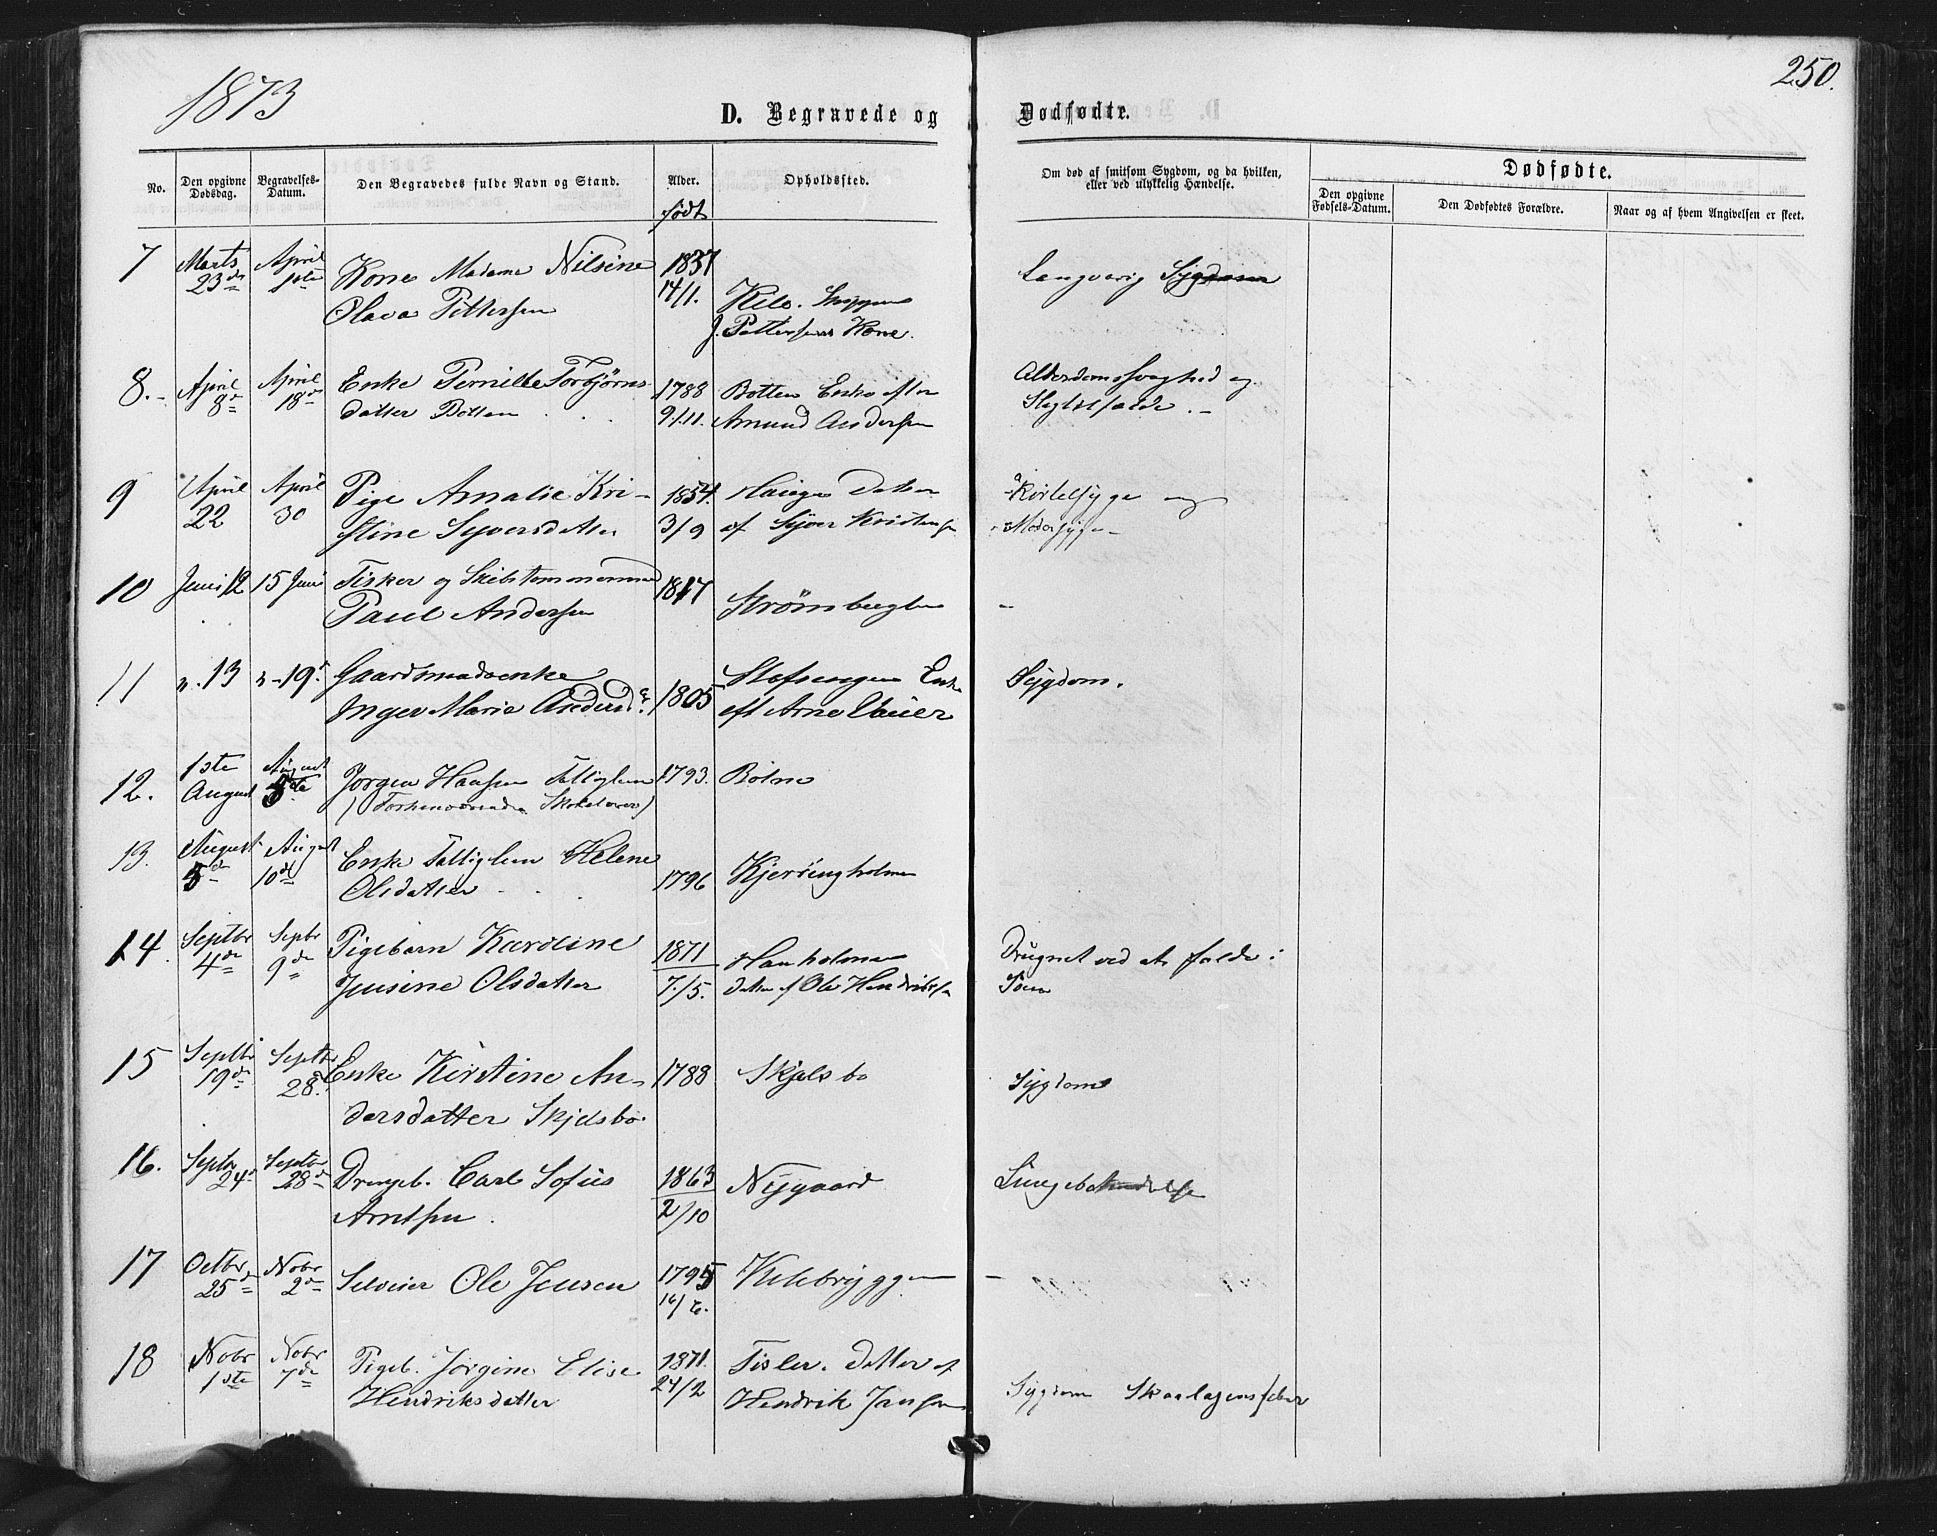 1873
250.
D. Begravede og Dødfødte.
No. Den opgivne Dødsdag. Begravelses-Datum. Den Begravedes fulde Navn og Stand. Alder. Opholdssted. Om død af smitsom Sygdom, og da hvilken, eller ved ulykkelig Hændelse.
Dødfødte.
Den opgivne Fødsels-Datum. Den Dødfødtes Forældre. Naar og af hvem Angivelsen er skeet.
født
7 Marts April Kone Madame Nilsine 1837 Langvarig Sygdom
23de 1ste Olava Pettersen 14/1. Kile. Skipper
J. Pettersens Kone.
8. April April Enke Pernille Torbjørns 1788 Botten Enke efter Alderdomssvaghed og
8de 18de datter Botten 9/11. Amund Andersen Slagtilfælde.
9 April April Pige Amalie Kri- 1854. Haugen Datter Kirtelsyge og
22 30 stine Syversdatter 3/9 af Syver Kristensen Modersyge
10 Juni 12 15 Juni Fisker og Skibstømmermand 1817 -
Paul Andersen Strømbugten
11 " 13 " 19de Gaardmandsenke 1805 Enke Sygdom.
Inger Marie Andersd. eft Arne
12. 1ste August Jørgen Hansen Fattiglem 1793. Botne
August 5te (Forhenværende Skolelærer)
13. August August Enke Fattiglem Helene 1796 Kjerringholmen
5de 10de Olsdatter
14. Septbr Sepbr Pigebarn Karoline 1871 Hanholmen Druknet ved at falde i
4de 9de Jensine Olsdatter 7/5. Datter af Ole Hendriksen Søen
15 Septbr Septbr Enke Kirstine An- 1788 Skjelsbo Sygdom
19de 28de dersdatter Skjelsbo.
16. Septbr Septbr Drengeb. Carl Sofus 1863 Nygaard Lungebetændelse
24de 28de Arntsen. 2/10
17 Octbr Nobr Selveier Ole Jensen 1795 Kilebryggen -
25de 2de 16/6.
18 Nobr Nobr Pigeb. Jørgine Elise 1871. Tisler. Datter af
1ste 7de Hendriksdatter 24/2 Hendrik Jansen Sygdom Skarlagensfeber